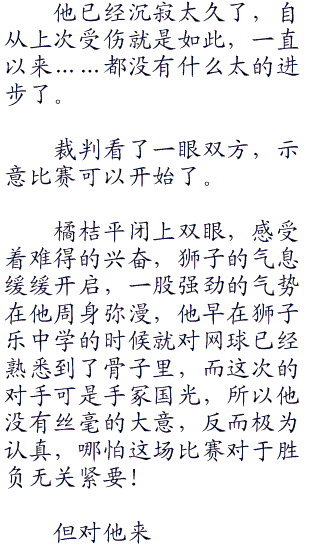 他已经沉寂太久了，自
从上次受伤就是如此，一直
以来……都没有什么太的进
步了。
裁判看了一眼双方，示
意比赛可以开始了。
橘桔平闭上双眼，感受
着难得的兴奋，狮子的气息
缓缓开启，一股强劲的气势
在他周身弥漫，他早在狮子
乐中学的时候就对网球已经
熟悉到了骨子里，而这次的
对手可是手冢国光，所以他
没有丝毫的大意，反而极为
认真，哪怕这场比赛对于胜
负无关紧要！
但对他来